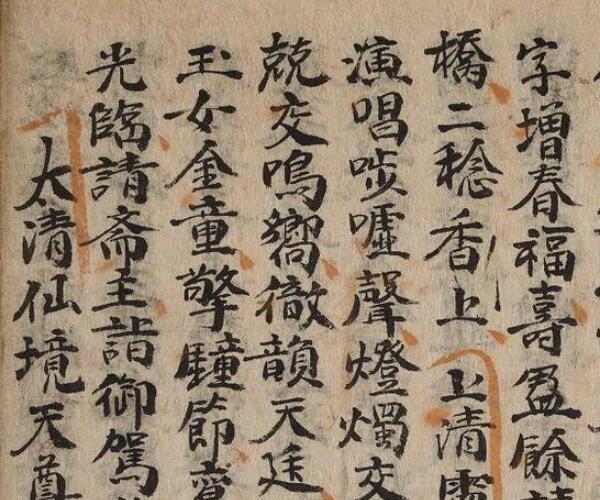 字增春福壽盈餘
橋二稔香上 上清
演唱步嘘聲燈燭交
兢交鳴嚮徹韻天廷
玉女金童擎幢節
光臨請斋主詣御駕
太清仙境天尊